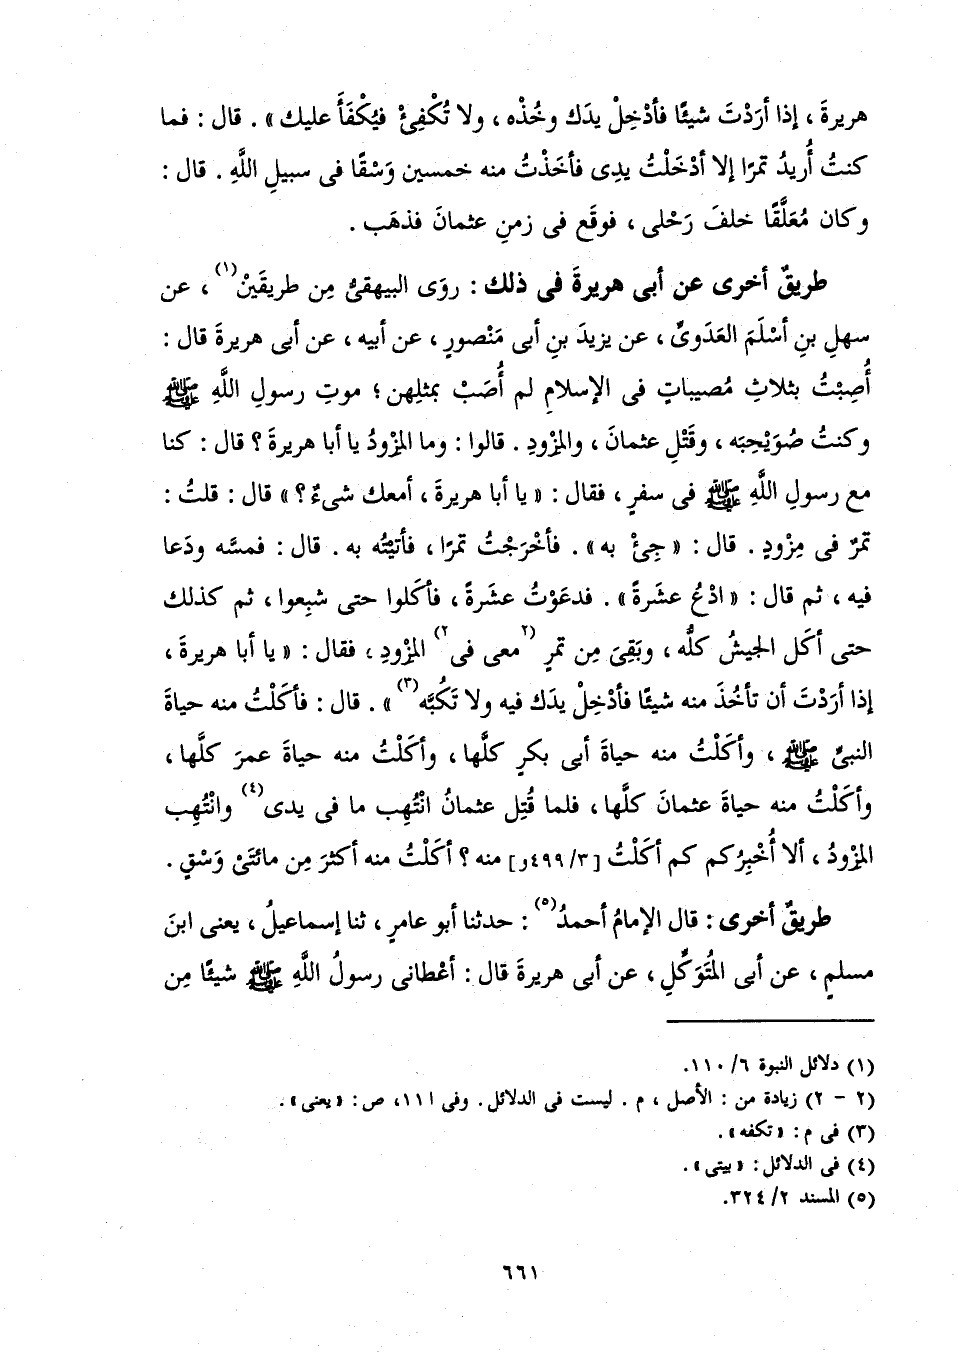 هريرةَ ، إذا أرَدْتَ شيئًا فأدْخِلْ يدَك وخُذْه ، ولا تُكْفِئْ فيُكْفَأَ عليك » . قال : فما
كنتُ أُريدُ تمرًا إلا أدْخَلْتُ يدِى فأخَذْتُ منه خمسين وَسْقًا فى سبيلِ اللَّهِ . قال :
وكان مُعَلَّقًا خلفَ رَحْلى ، فوقَع فى زمنِ عثمانَ فذهَب .
طريقٌ أخرى عن أبى هريرةَ فى ذلك : روَى البيهقىُّ مِن طريقَيْن(١) ، عن
سهلِ بنِ أسْلَمَ العَدَوىِّ ، عن يزيدَ بنِ أبى مَنْصورٍ ، عن أبيه ، عن أبى هريرةَ قال :
أُصِبْتُ بثلاثِ مُصيباتٍ فى الإسلامِ لم أُصَبْ بمثلِهن ؛ موتِ رسولِ اللَّهِ ﷺ
وكنتُ صُوَيْحِبَه ، وقَتْلِ عثمانَ ، والمِزْودِ . قالوا : وما المِزْودُ يا أبا هريرةَ ؟ قال : كنا
مع رسولِ اللَّهِ ﷺ فى سفرٍ ، فقال : « يا أبا هريرةَ ، أمعك شىءٌ ؟ » قال : قلتُ :
تمرٌ فى مِزْودٍ . قال : « جِئْ به » . فأخْرَجْتُ تمرًا ، فأتيْتُه به . قال : فمسَّه ودَعا
فيه ، ثم قال : « ادْعُ عشَرةً » . فدعَوْتُ عشَرةً ، فأكَلوا حتى شبِعوا ، ثم كذلك
حتى أكَل الجيشُ كلُّه ، وبَقِىَ مِن تمرِ (٢معى فى٢) المِزْودِ ، فقال : « يا أبا هريرةَ ،
إذا أرَدْتَ أن تأخُذَ منه شيئًا فأدْخِلْ يدَك فيه ولا تَكُبَّه(٣) » . قال : فأكَلْتُ منه حياةَ
النبىِّ ﷺ ، وأكَلْتُ منه حياةَ أبى بكرٍ كلَّها ، وأكَلْتُ منه حياةَ عمرَ كلَّها ،
وأكَلْتُ منه حياةَ عثمانَ كلَّها ، فلما قُتِل عثمانُ انْتُهِب ما فى يدى(٤) وانْتُهِب
المِزْودُ ، ألا أُخْبِرُكم كم أكَلْتُ [٣/ ٤٩٩ر] منه ؟ أكَلْتُ منه أكثرَ مِن مائتَىْ وَسْقٍ .
طريقٌ أخرى : قال الإمامُ أحمدُ(٥) : حدثنا أبو عامرٍ ، ثنا إسماعيلُ ، يعنى ابنَ
مسلمٍ ، عن أبى المُتَوَكِّلِ ، عن أبى هريرةَ قال : أعْطانى رسولُ اللَّهِ ﷺ شيئًا مِن
(١) دلائل النبوة ٦/ ١١٠.
(٢ - ٢) زيادة من : الأصل ، م . ليست فى الدلائل . وفى ا ١١، ص : « يعنى » .
(٣) فى م : « تكفه » .
(٤) فى الدلائل : « بيتى » .
(٥) المسند ٢/ ٣٢٤.
٦٦١